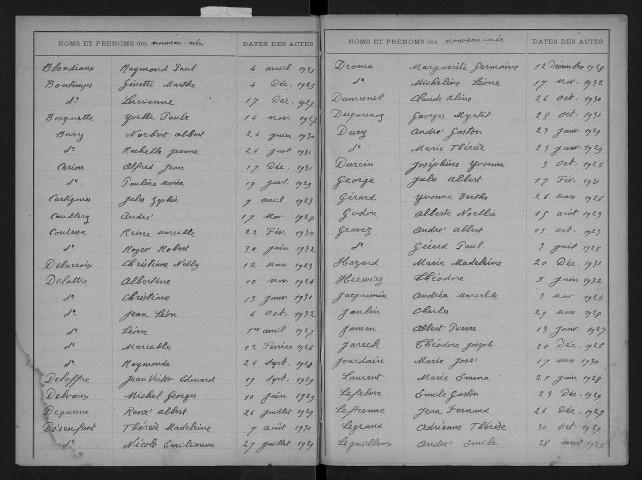 NOMS ET PRÉNOMS des nouveau-nés, DATES DES ACTES
Blondiaux Raymond Paul 4 avril
Bontemps Ginette Marthe 4 Déc.
d° Lucienne 17 Déc.
Bocquette Yvette Paule 14 nov.
Burry Norbert Albert 24 juin 1930
d° Rachelle Jeanne 1931
Carion Alfred Jean 17 Déc. 1931
d° Pauline Marie 19 1929
Cartignies Jules 9 avril
Caullery André 17
Coulasse Reine Marcelle 22 Fév. 1930
d° Roger Robert 30 juin 1932
Delacroix Christiane Nelly 12 mars 1923
Delattre Albertine 10 nov. 1924
d° Christiane 13 janv 1931
d° Jean Léon 6 oct. 1932
d° Léone 1er avril 1927
d° Marcelle 12 Février 1926
d° Raymonde 24 Sept. 1928
Deloffre Jean Victor Edouard 19 Sept. 1929
Delvaux Michel Georges 10 juin 1929
Dequesne René Albert 26 juillet 1929
Désenfant Thérèse Madeleine 7 août 1930
d° Nicole Emilienne 27 juillet 1929
NOMS ET PRÉNOMS des nouveau-nés DATES DES ACTES
Marguerite Germaine 12 Décembre
d° Micheline Léone 17 nov. 1932
Dumesnil Claude Aline 26 Oct. 1930
Duquesnoy Georges 28 oct 1931
Dury André Gaston 23 janv 1929
d° Marie Thérèse 25 janv 1929
Joséphine Yvonne 3 oct. 1925
George Jules Albert 17 Fév. 1931
Gérard Yvonne Berthe 26 mars 1926
Godon Alberte Noëllie 15 août 1929
Gravez André Albert 15 oct. 1923
d° Gérard Paul 3 1925
Hazard Marie Madeleine 20 Déc. 1931
Théodore 5 juin 1932
Jacquemin Andréa Marcelle 3 mai
Charles 29 mars
Albert Pierre 13 janv. 1927
Théodore Joseph 20 Déc.
Jourdaine Marie José 17 mars 1930
Laurent Marie Emma 25 juin
Lefebvre Emile Gaston 23 Déc. 1929
Jean Fernand 26 Déc. 1929
Legrand Adrienne Thérèse 30 oct 1929
Leguilloux André Emile 28 1925